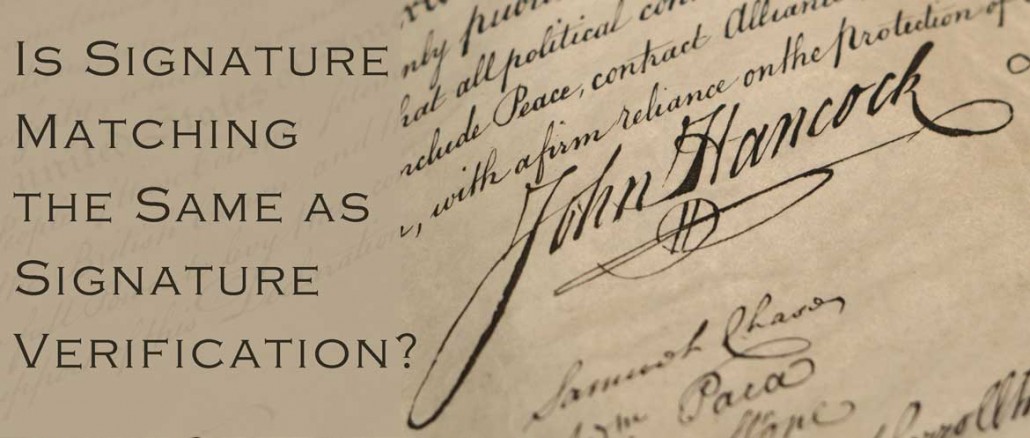 Is Signature
Matching
the Same as
Signature
Verification?
nly publi
hat all political con
nclude Peace, contract Alliance
, with a firm reliance on the protection of
John Hancock
Samuel Chase
Wm Paca